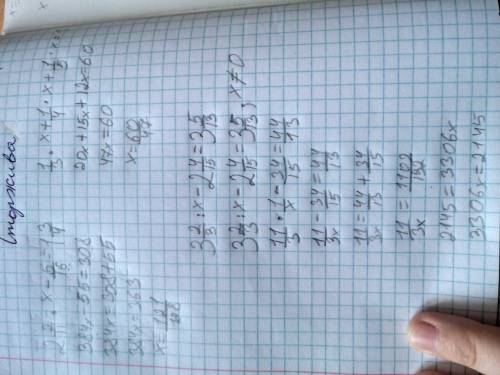 2 2/11 · x - 5/16 = 1 3/4
384x - 55 = 308
384x = 308 + 55
384x = 363
x = 121/128
1/3 · x + 1/4 · x + 1/5 · x =
20x + 15x + 12x = 60
47x = 60
x = 60/47
3 2/3 : x - 2 4/15 = 3 5/13
3 2/3 : x - 2 4/15 = 3 5/13, x ≠ 0
11/3 · 1/x - 34/15 = 44/13
11/3x - 34/15 = 44/13
11/3x = 44/13 + 34/15
11/3x = 1102/195
2145 = 3306x
3306x = 2145